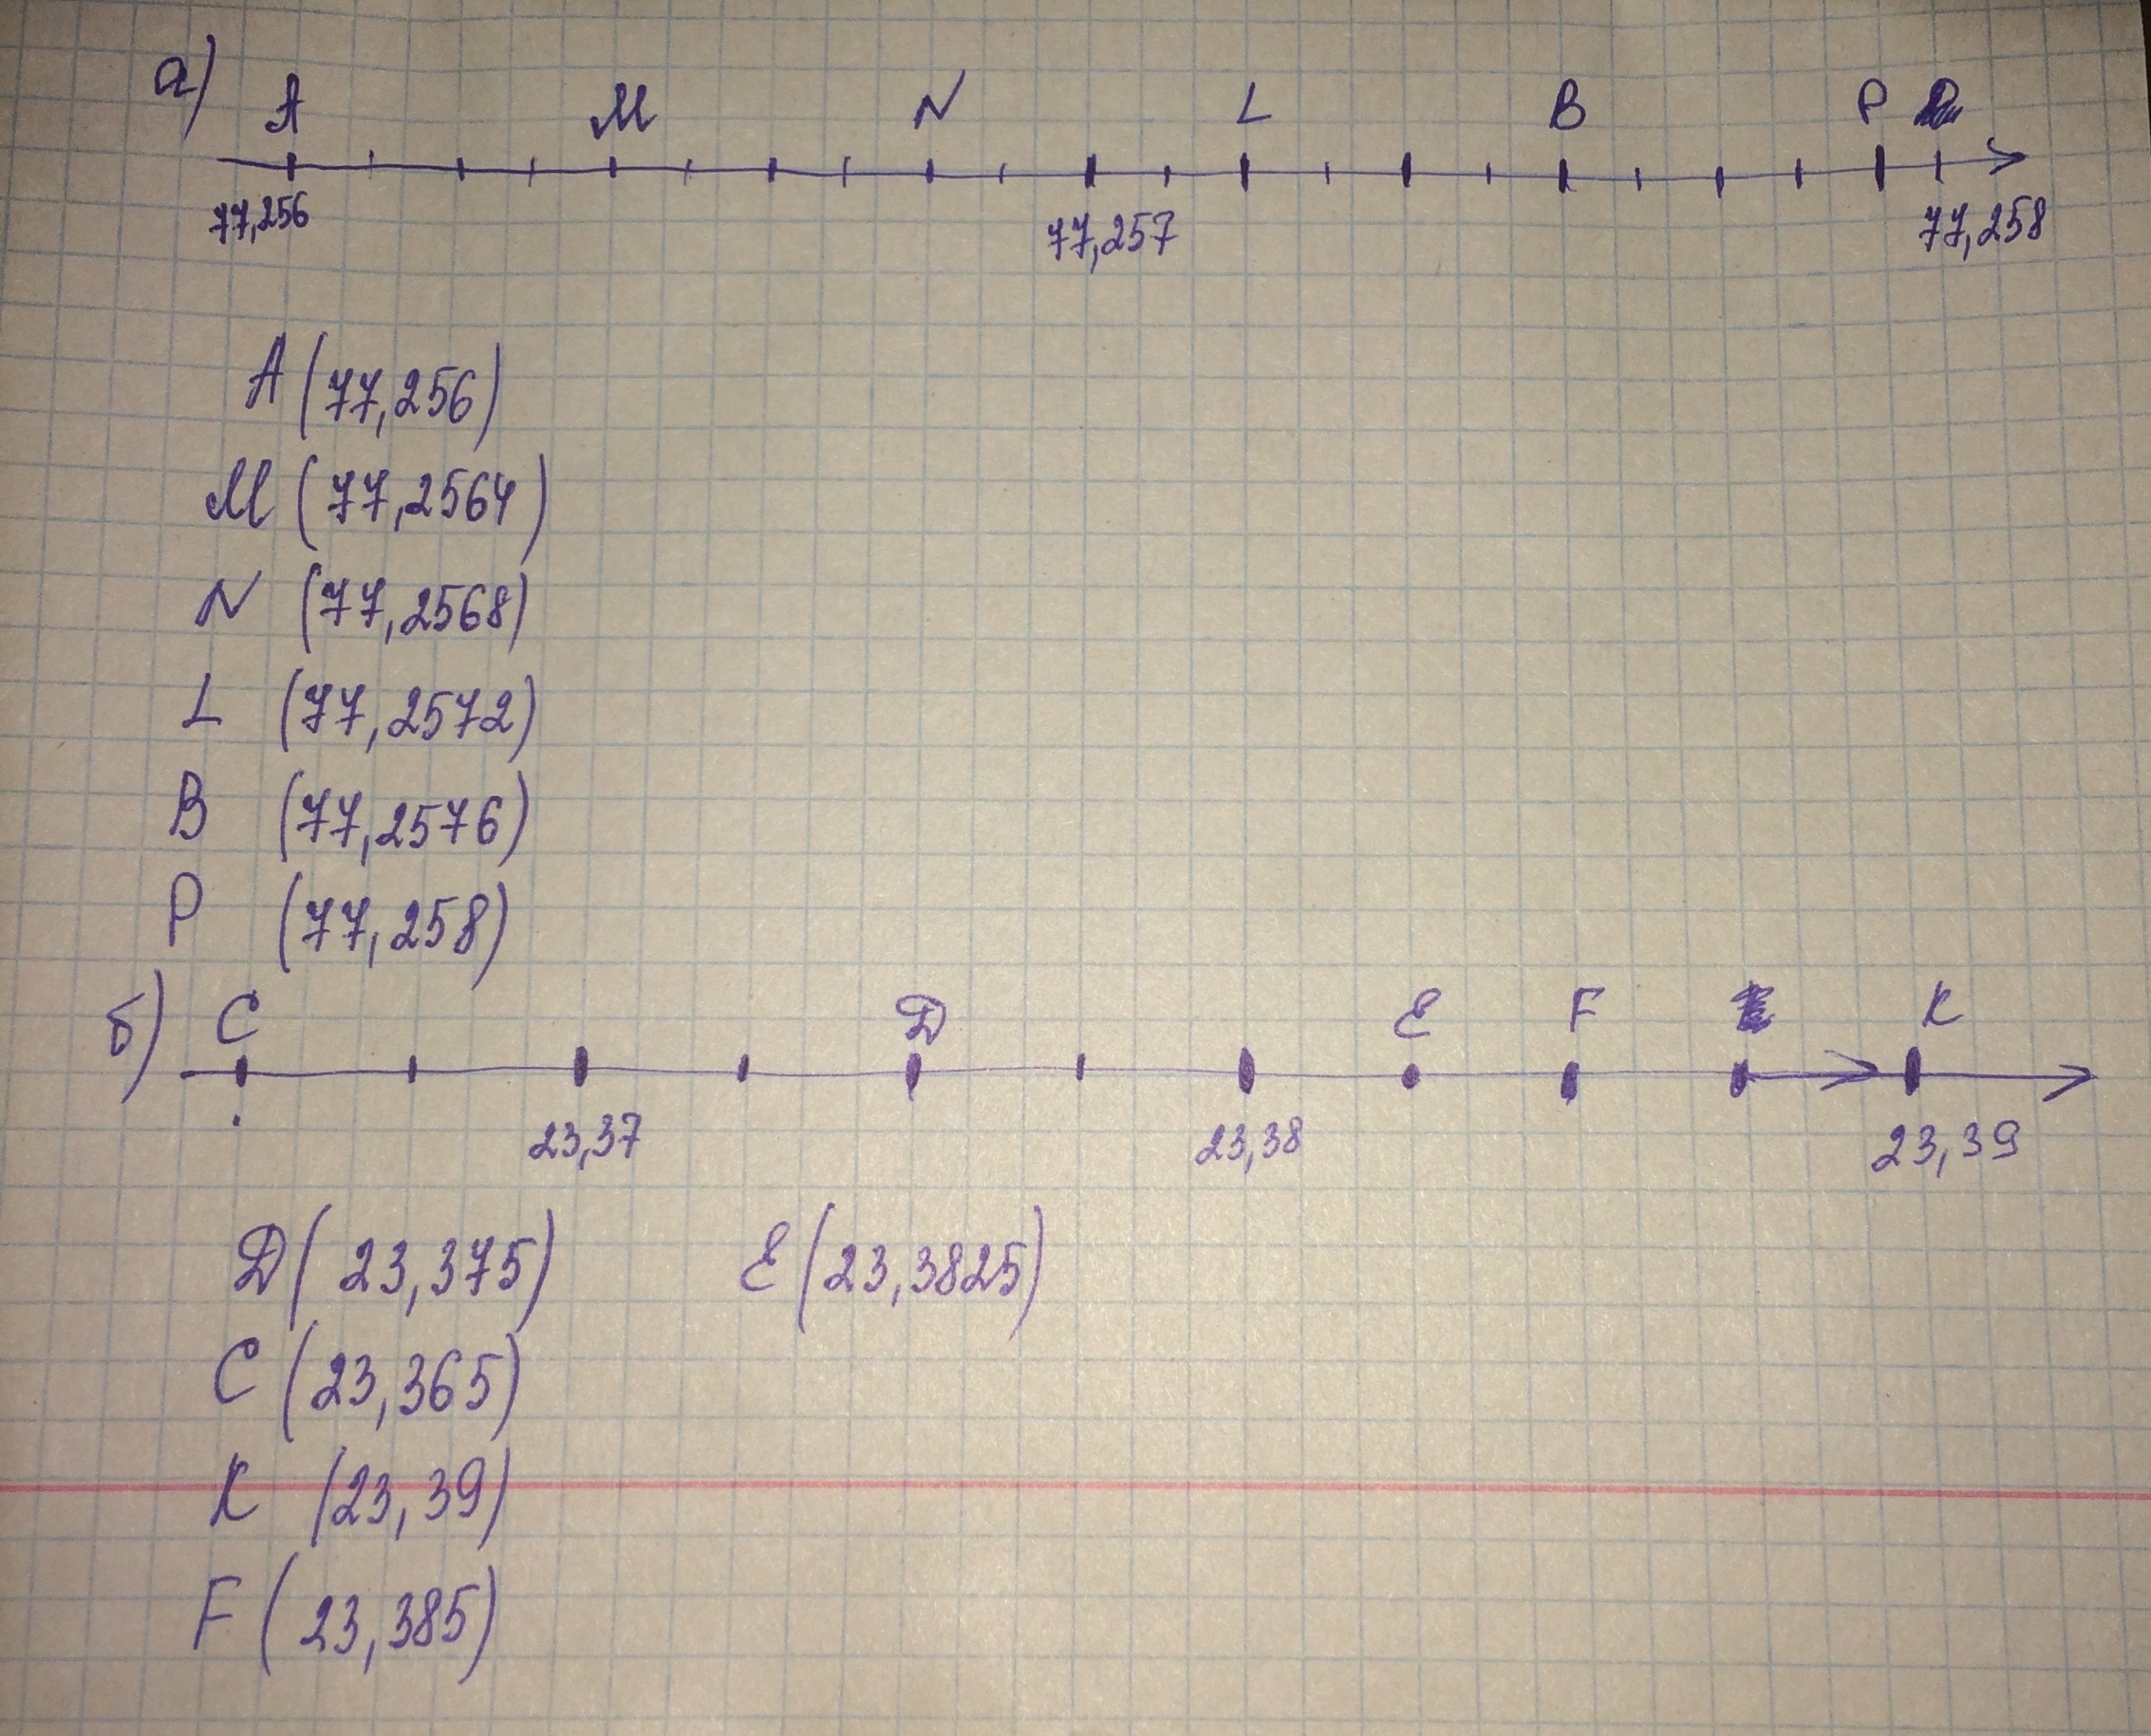 а)
A M N L B P
77,256 77,257 77,258
A (77,256)
M (77,2564)
N (77,2568)
L (77,2572)
B (77,2576)
P (77,258)
б) C D E F K
23,37 23,38 23,39
D (23,375) E (23,3825)
C (23,365)
K (23,39)
F (23,385)